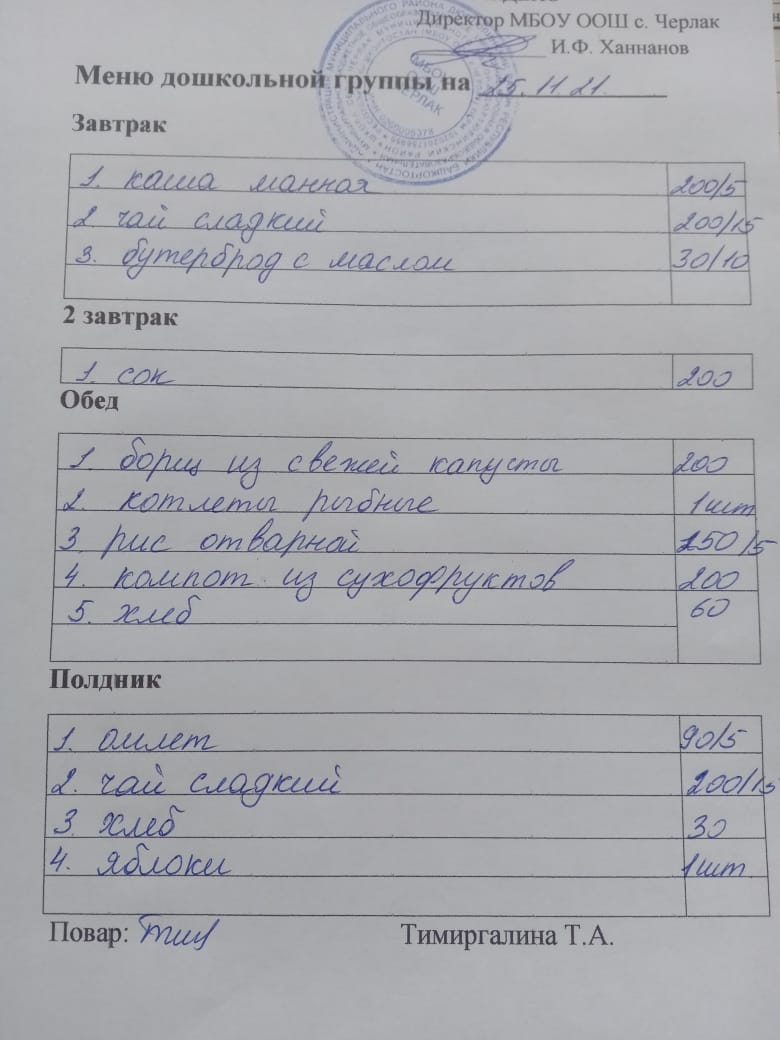 Директор МБОУ ООШ с. Черлак
И.Ф. Ханнанов
МБОУ
ООШ
ЧЕРЛАК
Меню дошкольной группы на 25.11.21.
Завтрак
1. каша манная 200/5
2 чай сладкий 200/15
3. бутерброд с маслом 30/10
2 завтрак
1. сок 200
Обед
1. борщ из свежей капусты 200
2. котлеты рыбные 1шт
3 рис отварной 150/5
4. компот из сухофруктов 200
5. хлеб 60
Полдник
1. омлет 90/5
2. чай сладкий 200/15
3. хлеб 30
4. яблоки 1шт
Повар: Тимиргалина Т.А.